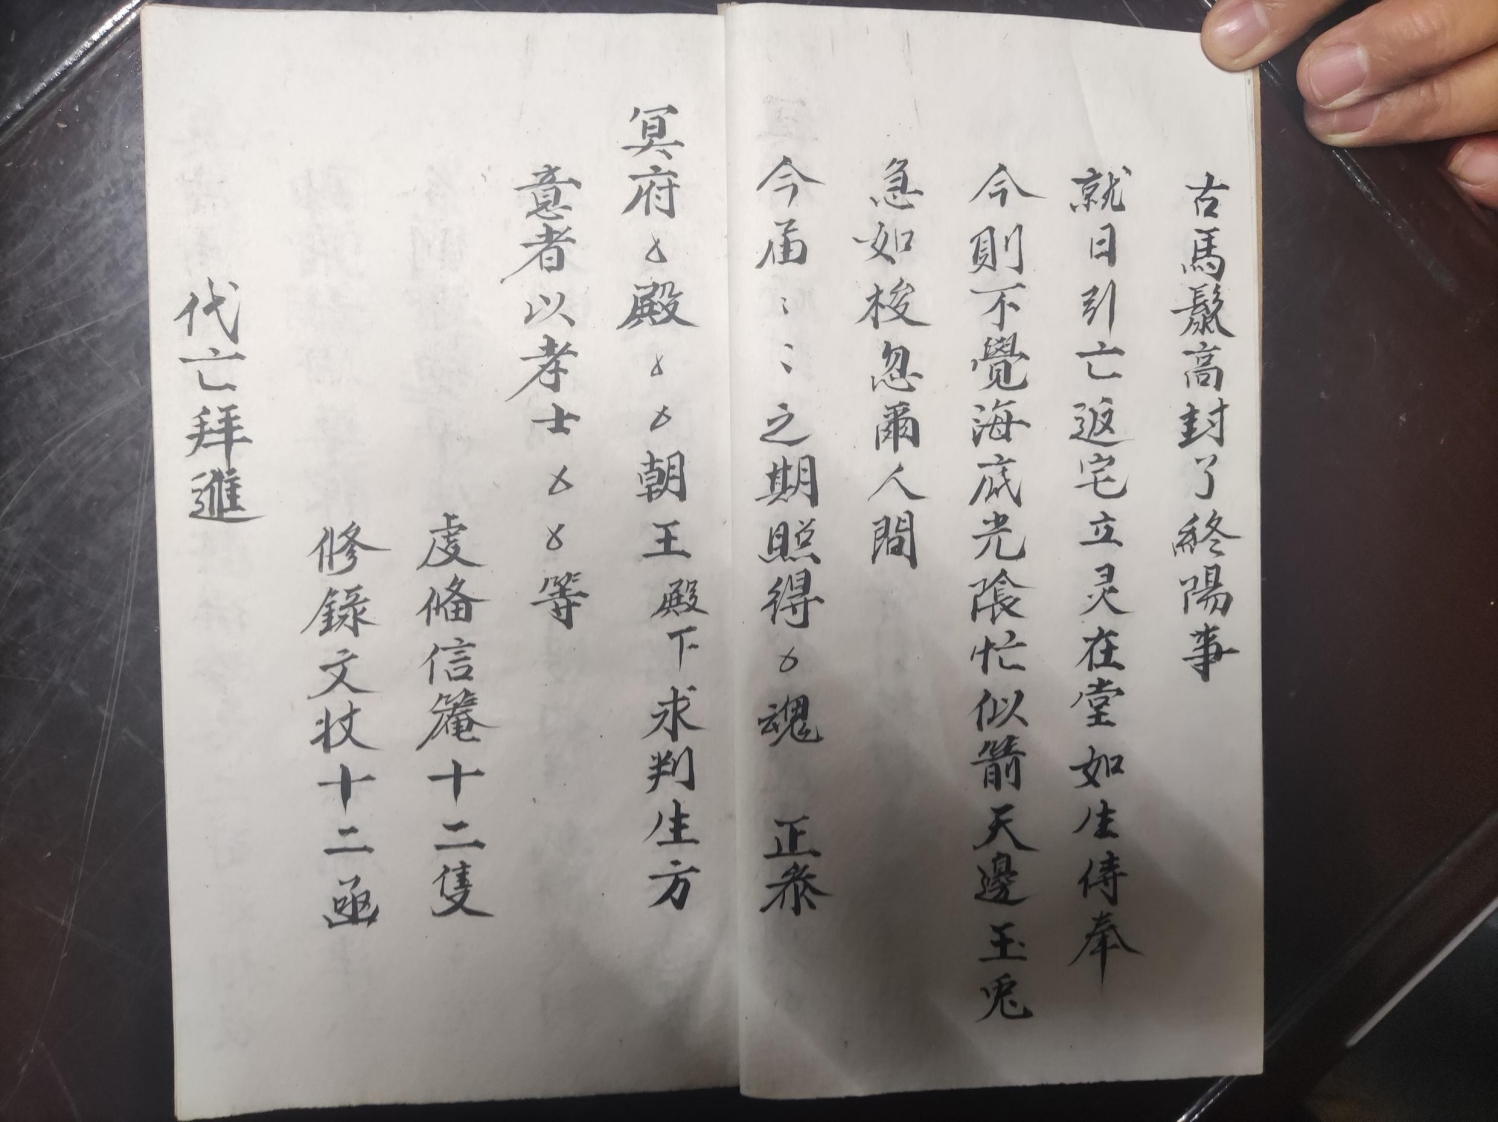 古馬鬛高封了終陽事
就日引亡返宅立灵在堂如生侍奉
今則不覺海底光陰忙似箭天邊玉兎
急如梭忽爾人間
今届〻〻之期照得ㄨ魂 正泰
冥府ㄨ殿ㄨㄨ朝王殿下求判生方
意者以孝士ㄨㄨ等
虔俻信篭十二隻
修錄文状十二函
代亡拜進